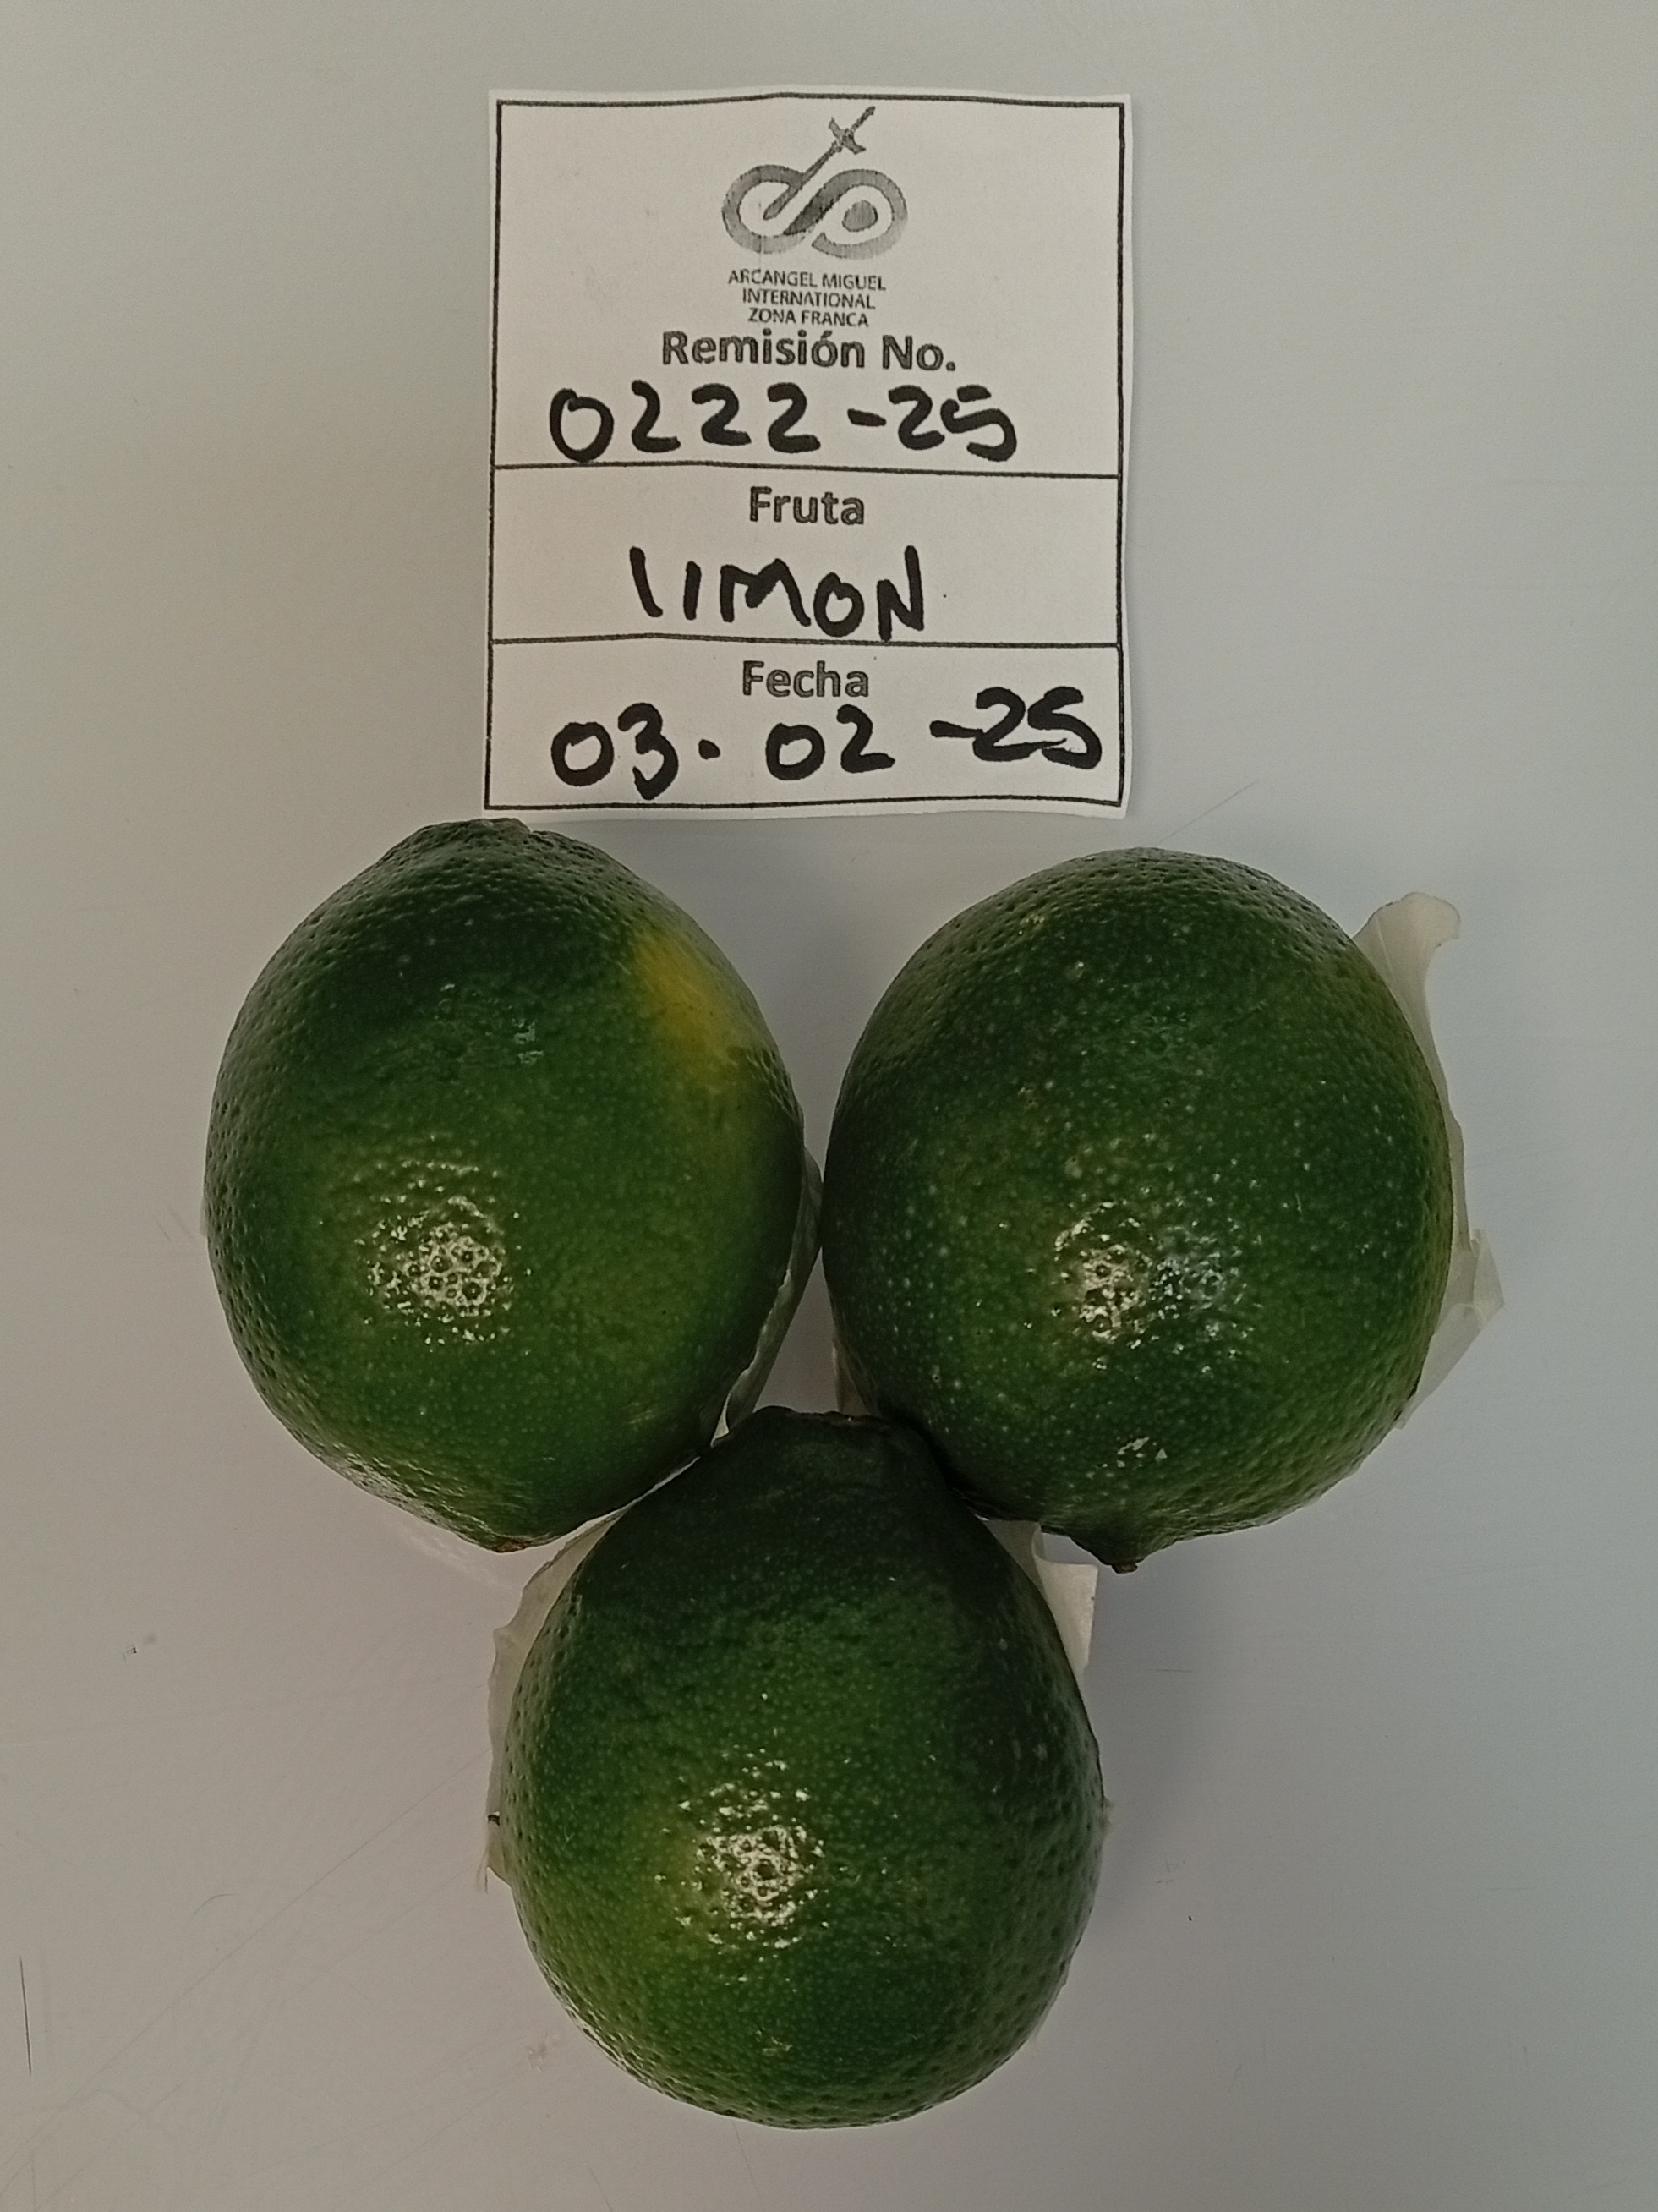 ARCANGEL MIGUEL
INTERNATIONAL
ZONA FRANCA
Remisión No.
0222-25
Fruta
LIMON
Fecha
03.02-25